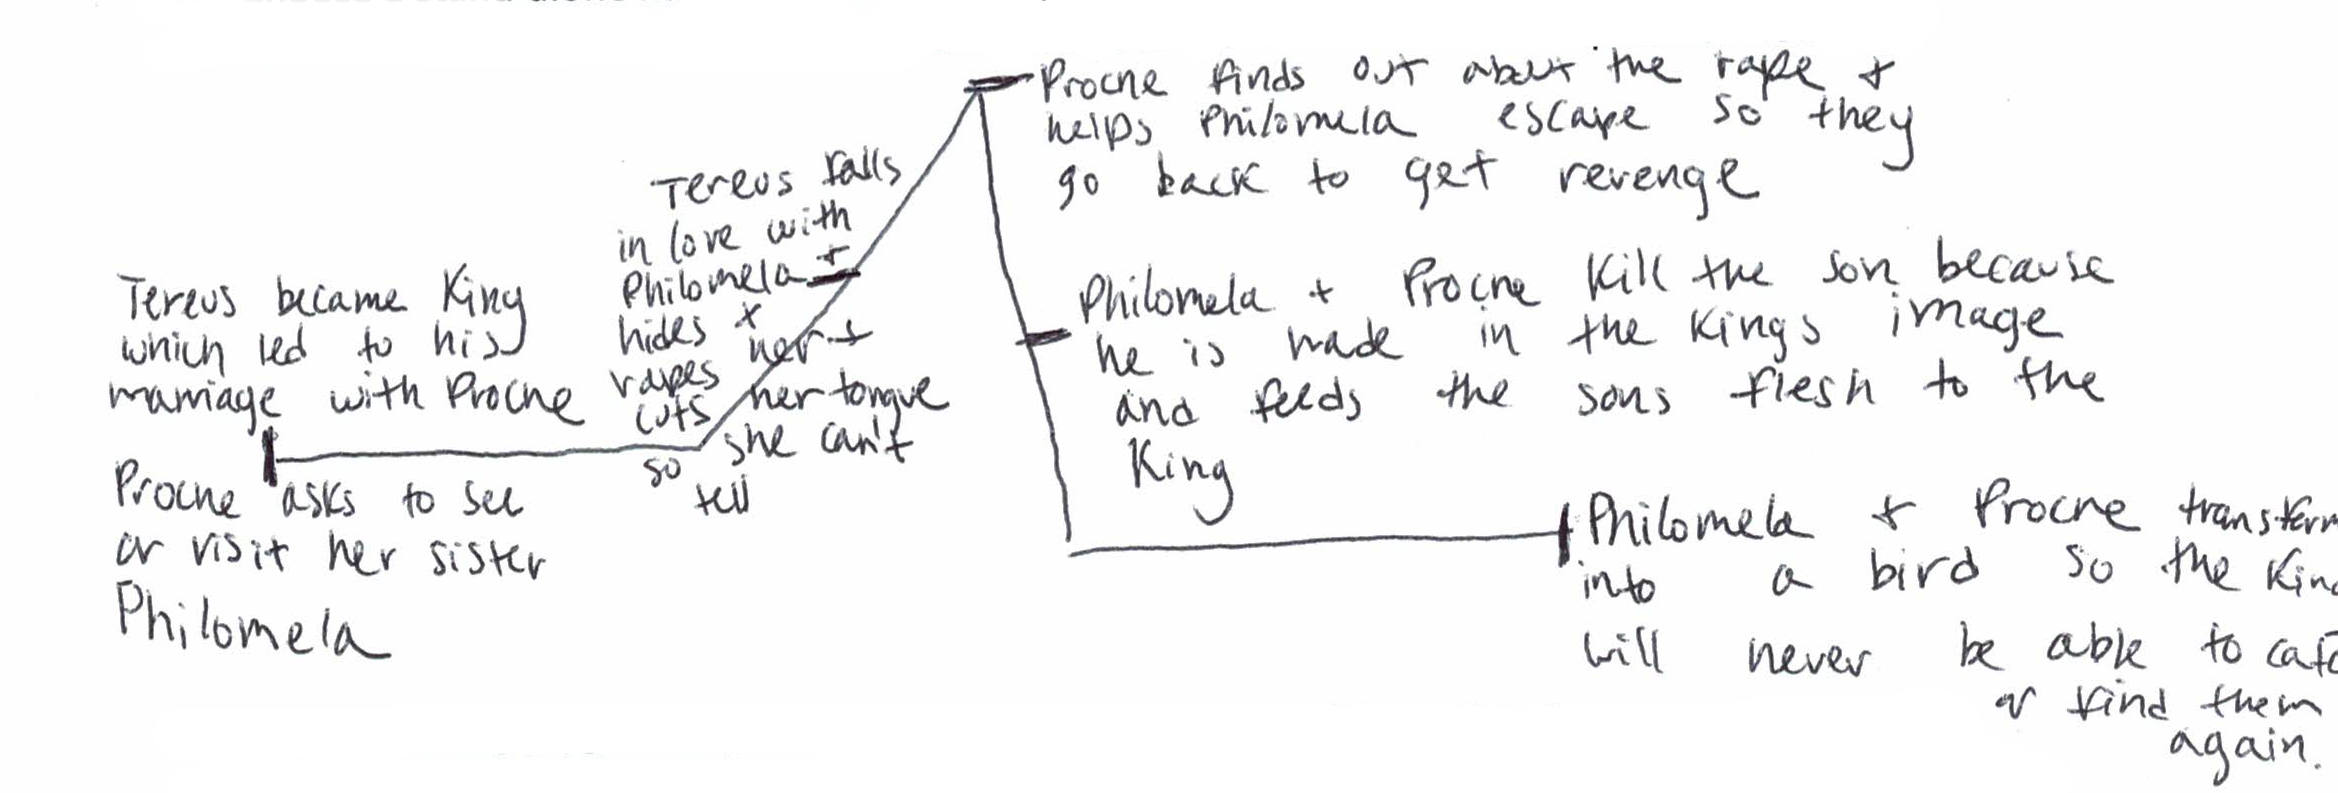 Tereus became King
which led to his
marriage with Procne
Procne asks to see
or visit her sister
Philomela
Tereus falls
in love with
Philomela +
hides +
rapes her +
cuts her tongue
so she can't
tell
Procne finds out about the rape +
helps Philomela escape so they
go back to get revenge
Philomela + Procne Kill the son because
he is made in the Kings image
and feeds the sons flesh to the
King
Philomela + Procne transform
into a bird so the
will never be able to
or find them
again.